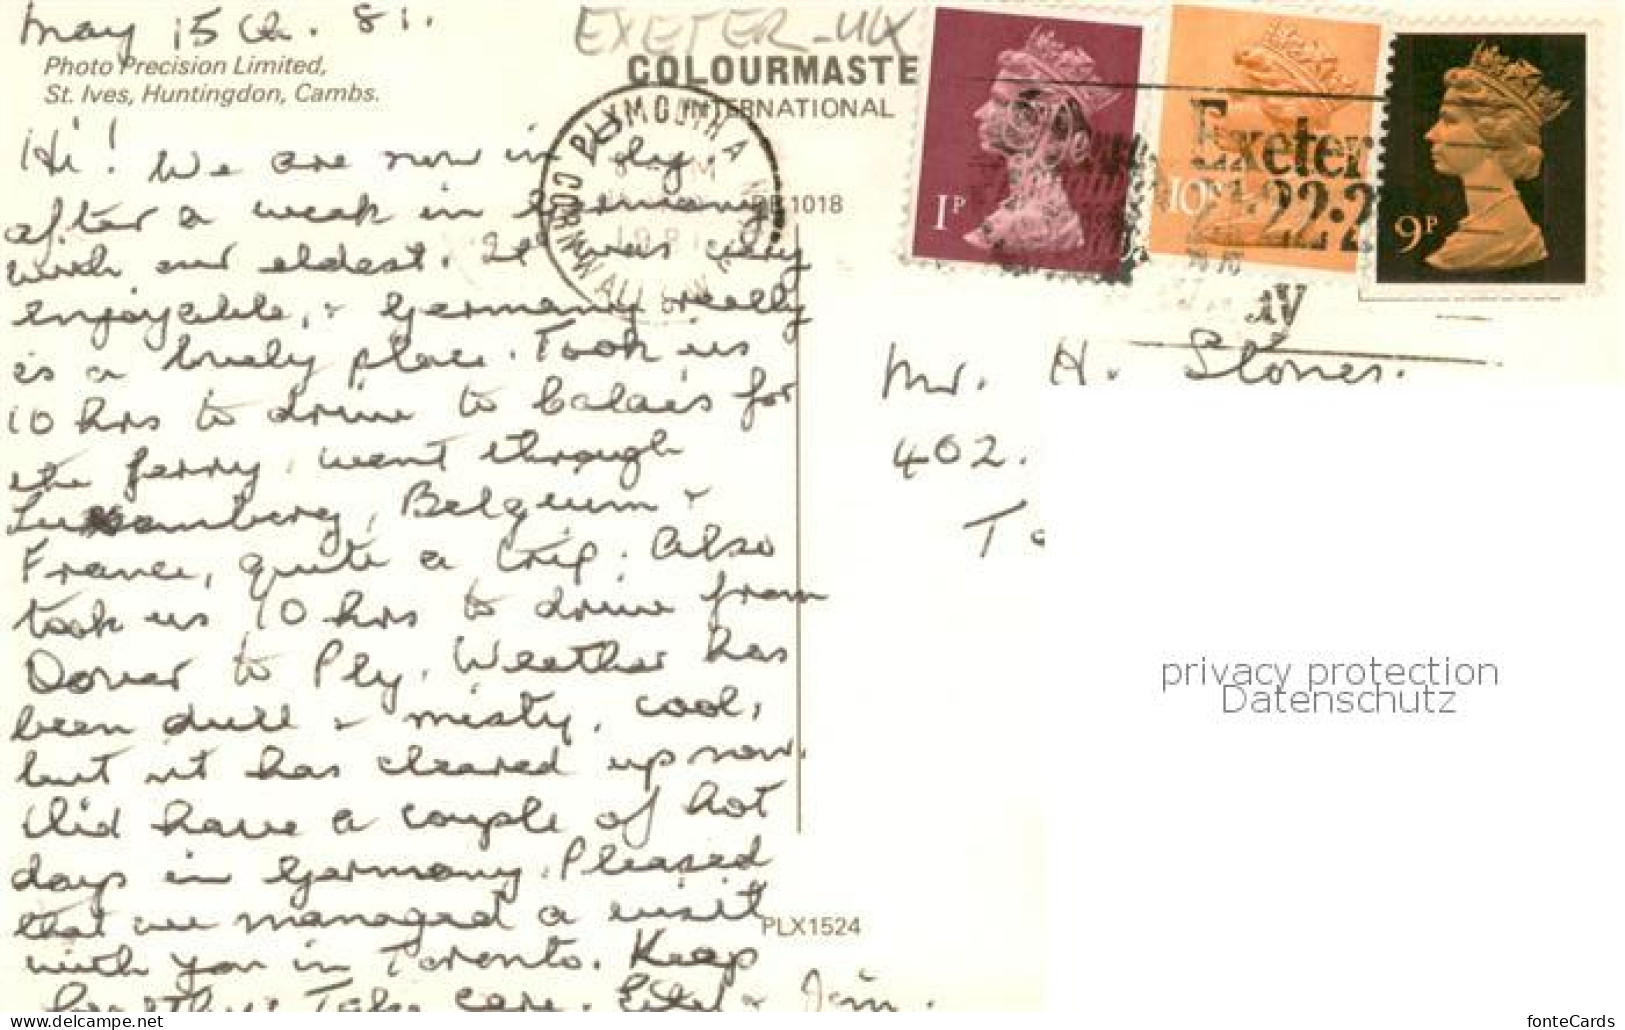 May 15th. 81.
EXETER-UK
Photo Precision Limited,
St. Ives, Huntingdon, Cambs.
COLOURMASTE
INTERNATIONAL
PLYMOUTH
CORNWALL
1P
10P
9P
Exeter
Hi! We are now in Ply.
after a week in Germany
1018
with our eldest. It was very
enjoyable, & Germany really
is a lovely place. Took us
10 hrs to drive to Calais for
the ferry, went through
Luxemberg, Belgium &
France, quite a trip. Also
took us 10 hrs to drive from
Dover to Ply. Weather has
been dull & misty, cool,
but it has cleared up now.
Did have a couple of hot
days in Germany. Pleased
that we managed a visit
with you in Toronto. Keep
healthy. Take care. & Jim.
PLX1524
Mr. H. Stones.
402.
To
privacy protection
Datenschutz
https://www.ansichtskarten-center.de
fonteCards